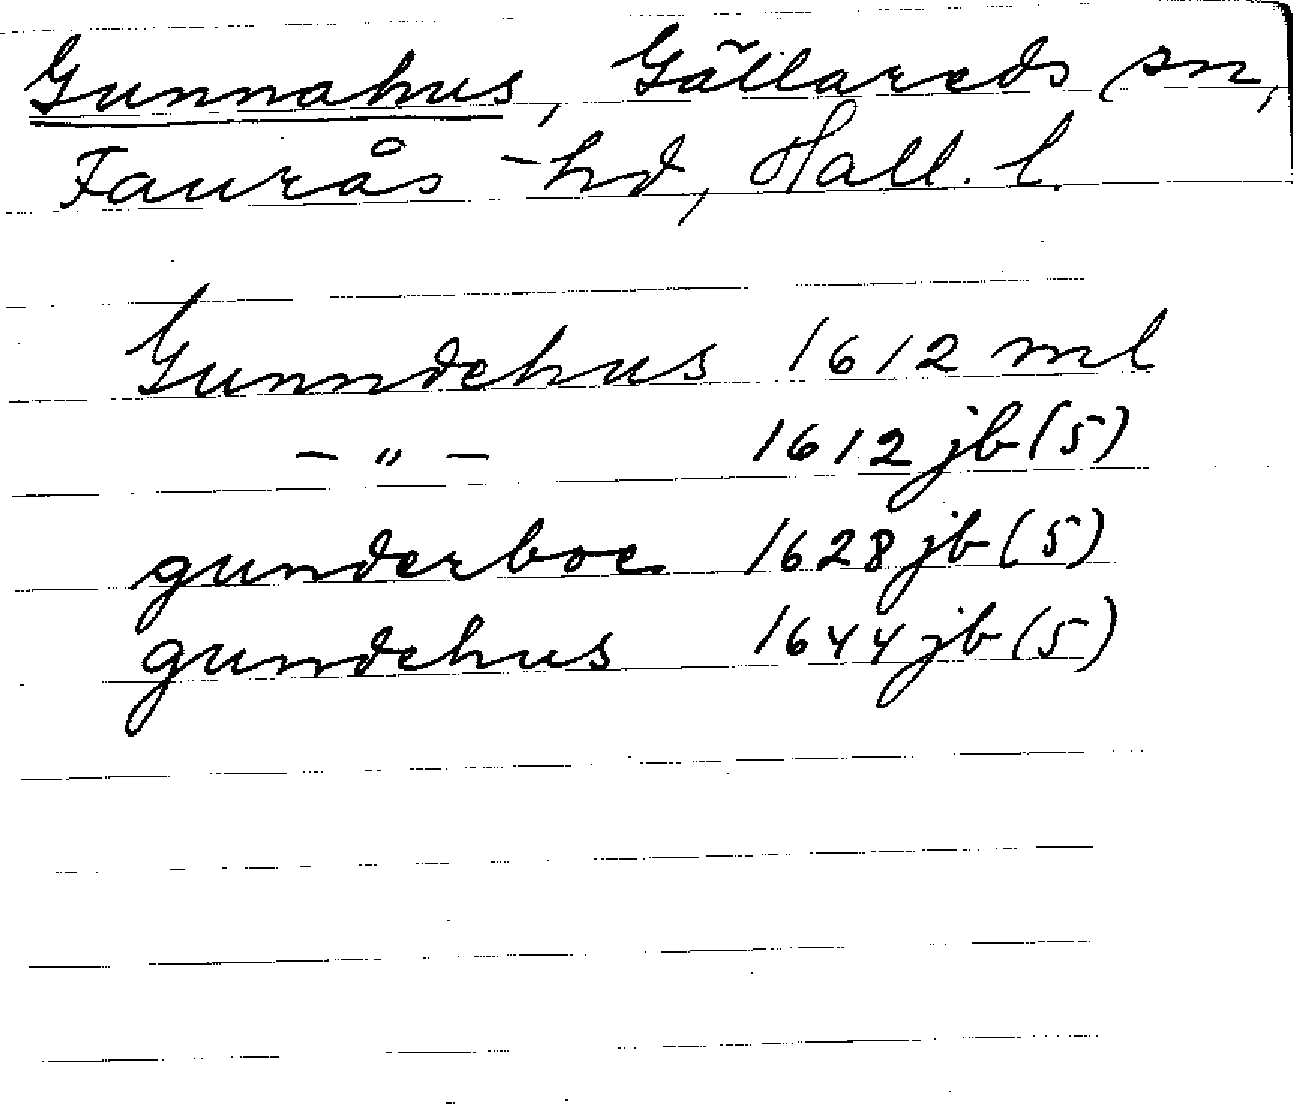 Gunnahus, Gällareds sn,
Faurås-hd, Hall. l.
Gunndehus 1612 ml
— " — 1612 jb (5)
gunderboe 1628 jb (5)
gundehus 1644 jb (5)